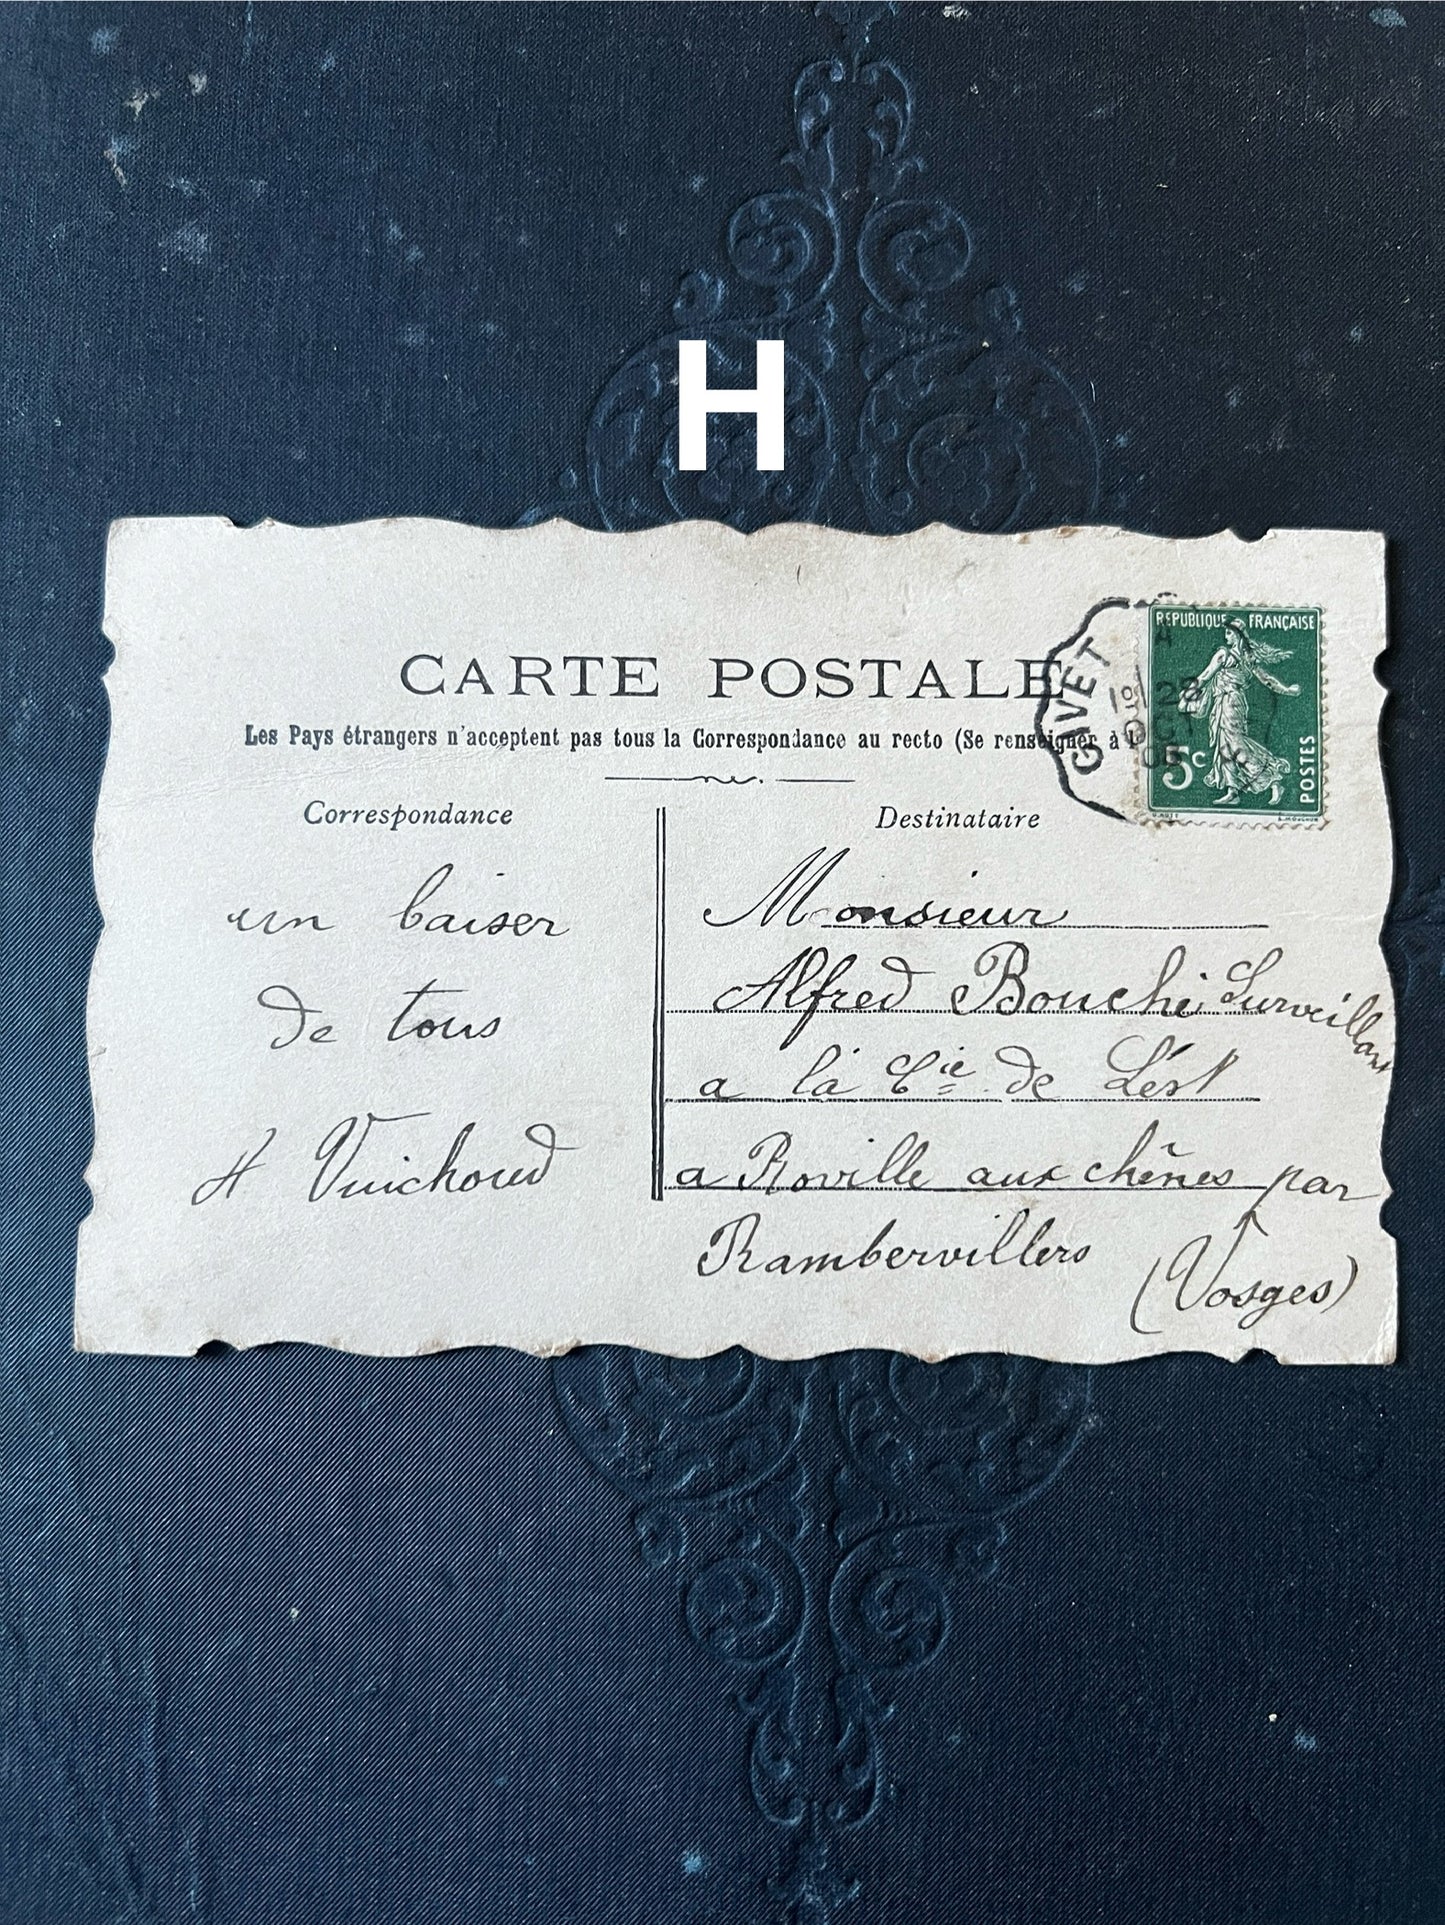 H
CARTE POSTALE
Les Pays étrangers n'acceptent pas tous la Correspondance au recto (Se renseigner à
Correspondance
un baiser
de tous
H Vuichoud
Destinataire
Monsieur
Alfred Bouché Surveillant
a la Cie de L'ést
a Roville aux chênes par
Rambervillers
(Vosges)
REPUBLIQUE FRANÇAISE
5c
POSTES
GIVET
28
OCT